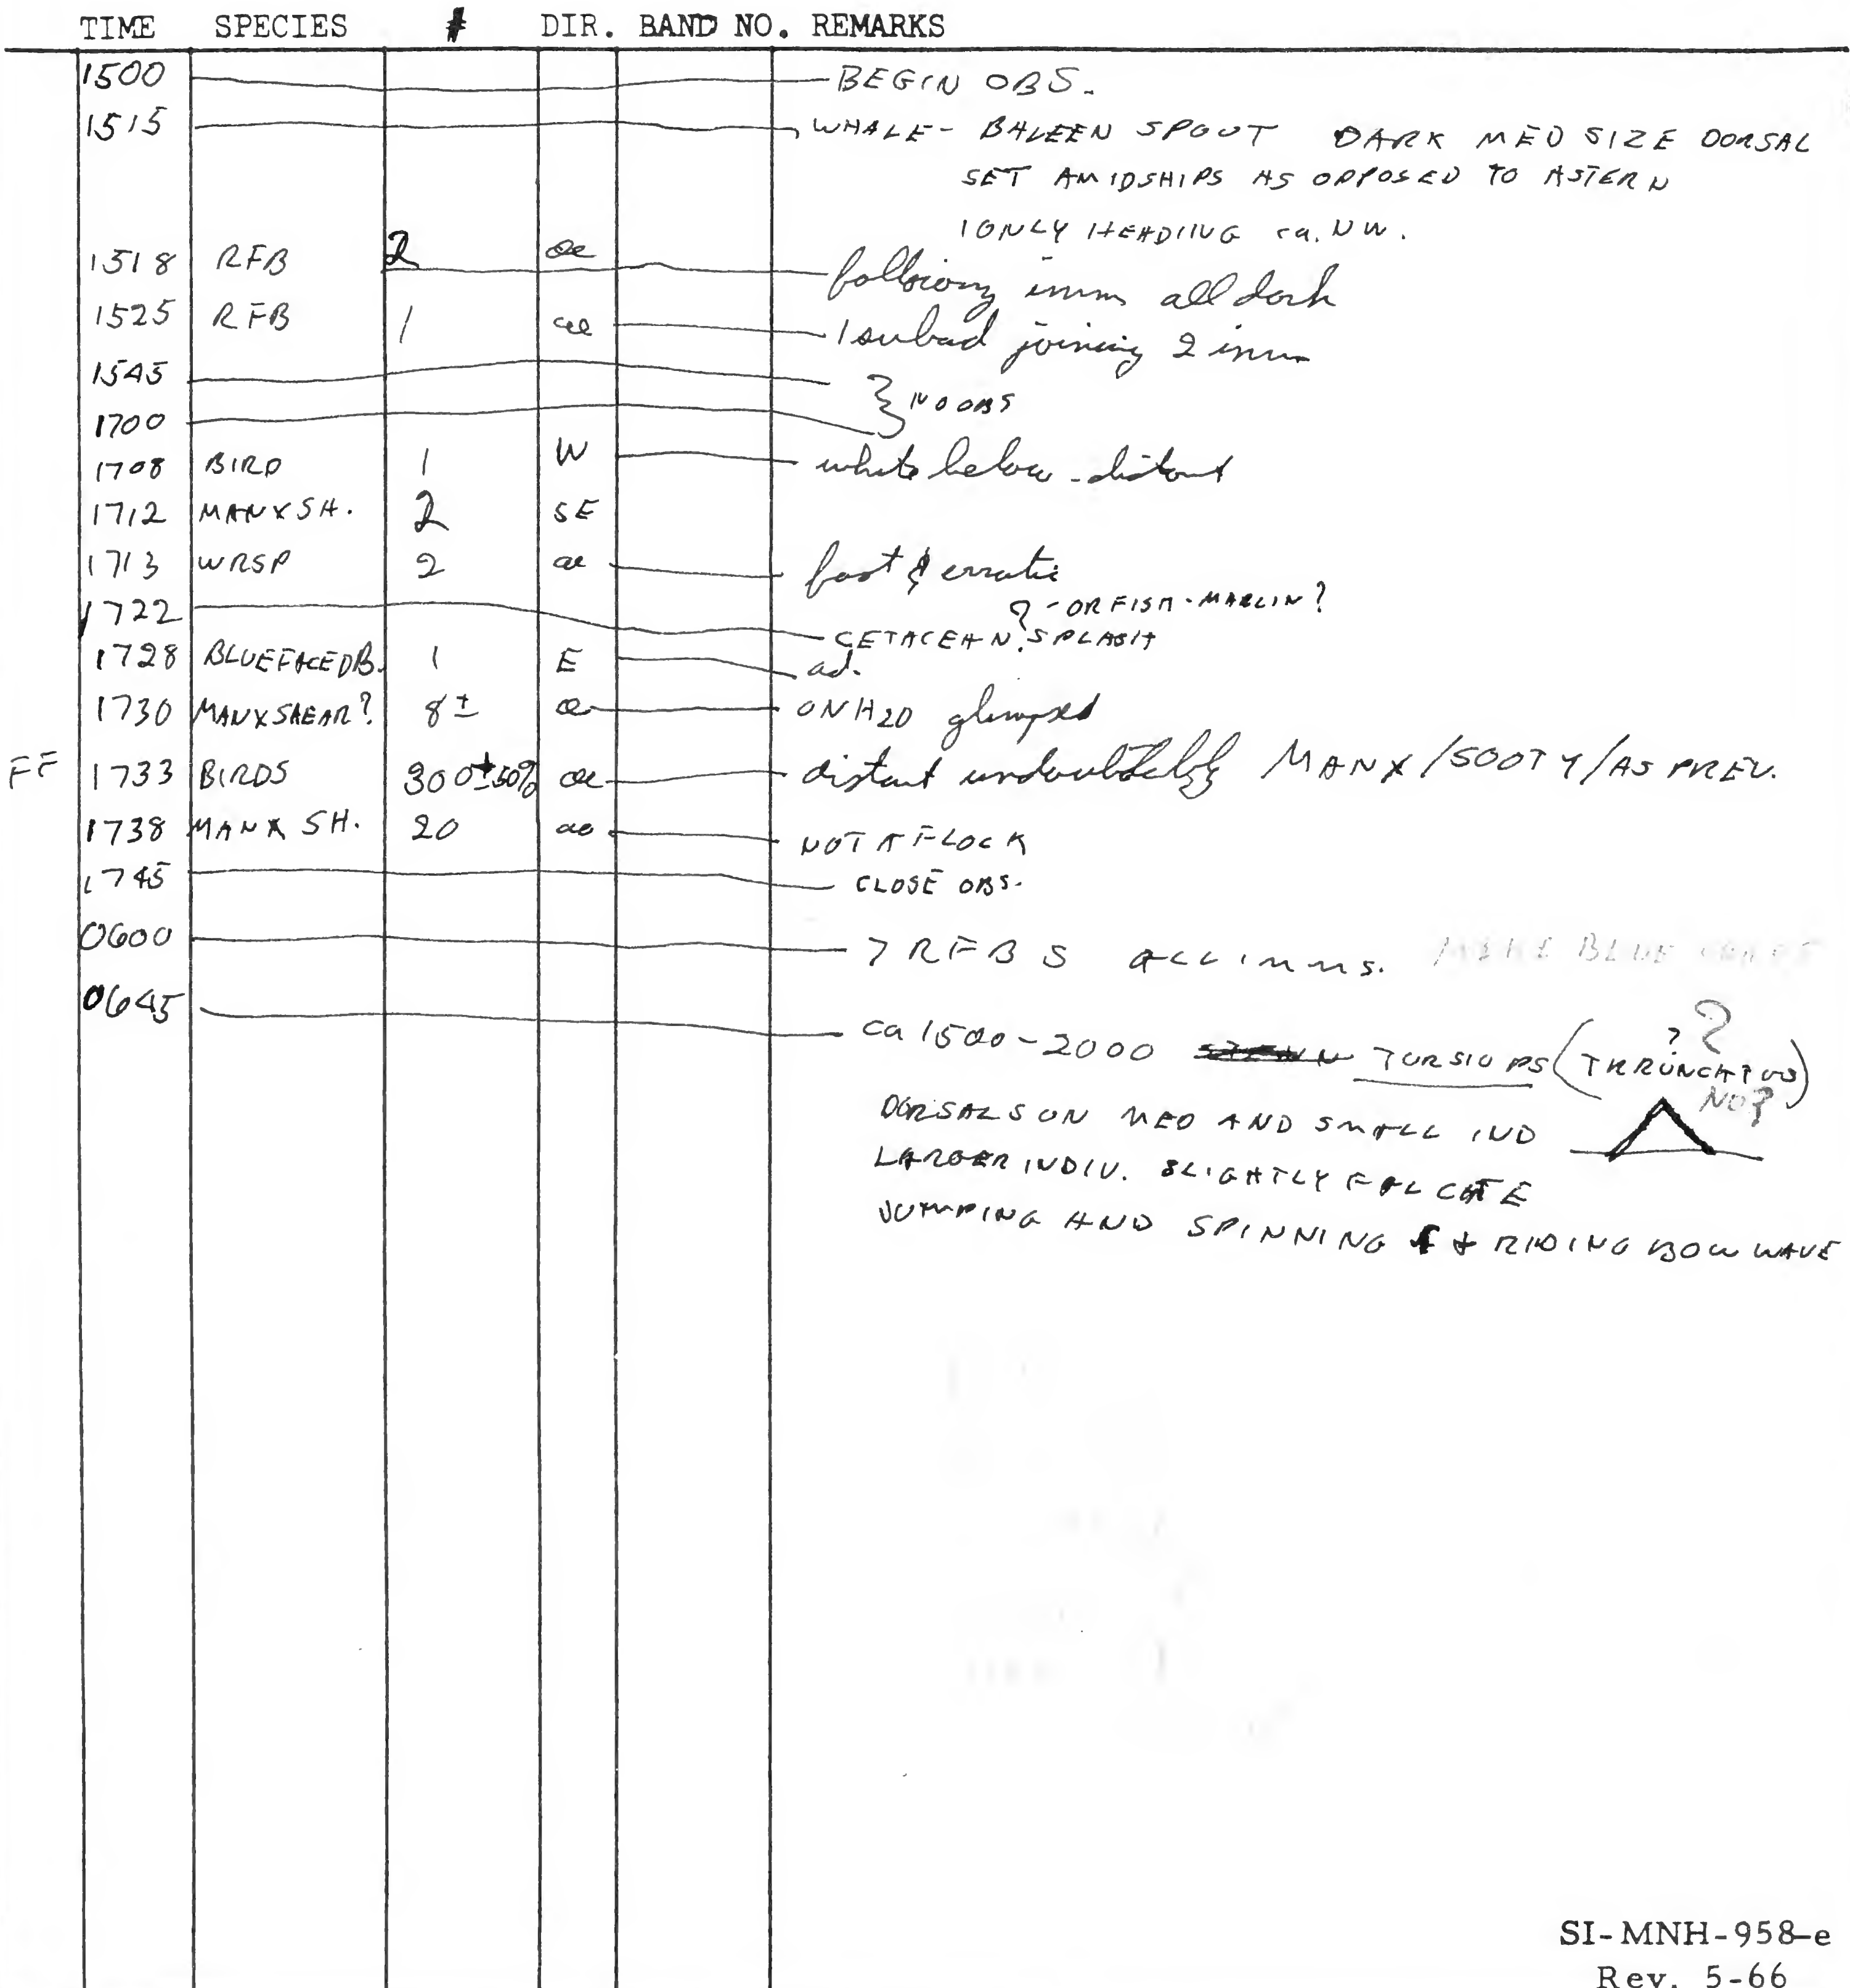 TIME SPECIES # DIR. BAND NO. REMARKS
1500 BEGIN OBS.
1515 WHALE - BALEEN SPOUT DARK MED SIZE DORSAL
SET AMIDSHIPS AS OPPOSED TO ASTERN
1 ONLY HEADING ca. NW.
1518 RFB 2 ae following imm all dark
1525 RFB 1 ae 1 subad joining 2 imm
1545
} NO OBS
1700
1708 BIRD 1 W white below - distant
1712 MANX SH. 2 SE
1713 WRSP 2 ae fast & erratic
? - OR FISH - MARLIN?
1722 CETACEAN. SPLASH
1728 BLUEFACED B. 1 E ad.
1730 MANX SHEAR? 8± ae ON H2O glimpsed
FF 1733 BIRDS 300±50% ae distant undoubtedly MANX/SOOTY/AS PREV.
1738 MANX SH. 20 ae NOT A FLOCK
1745 CLOSE OBS.
0600 7 RFBS all imms. BLUE
0645 ca 1500-2000 TURSIOPS (TRRUNCATUS) ? ?
NO?
DORSALS ON MED AND SMALL IND
LARGER INDIV. SLIGHTLY FALCATE
JUMPING AND SPINNING + RIDING BOW WAVE
SI-MNH-958-e
Rev. 5-66